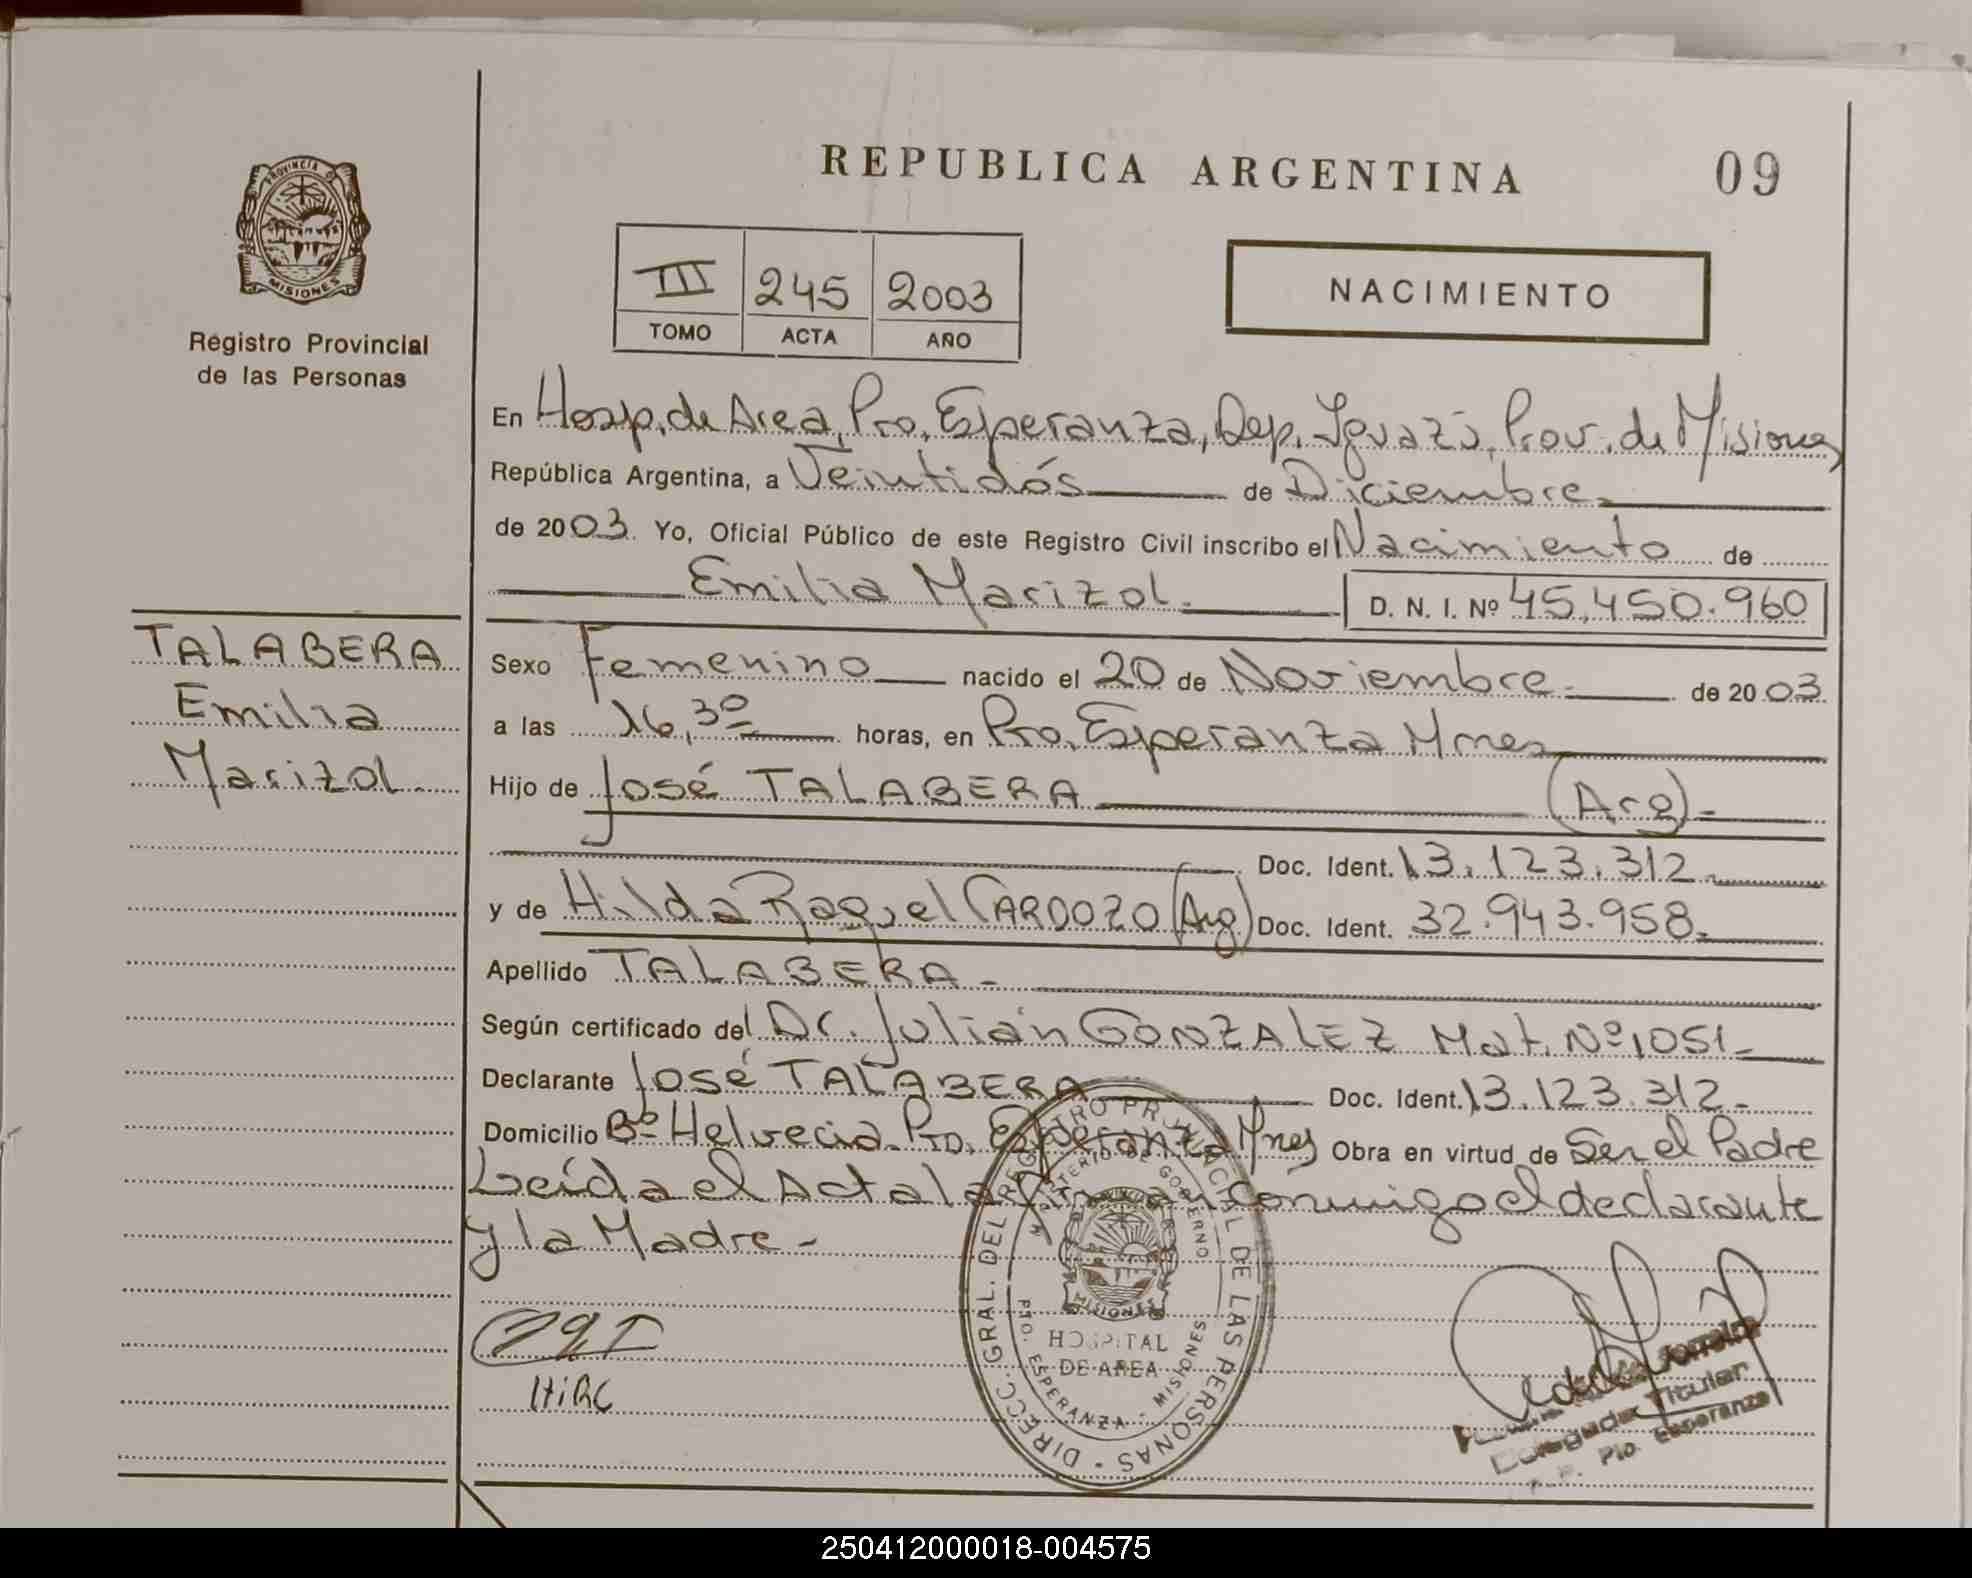 REPUBLICA ARGENTINA
09
PROVINCIA D
MISIONES
Registro Provincial
de las Personas
III 245 2003
TOMO ACTA AÑO
NACIMIENTO
En Hosp. de Area, Pto. Esperanza, Dep. Iguazú, Prov. de Misiones,
República Argentina, a Veintidós de Diciembre
de 2003. Yo, Oficial Público de este Registro Civil inscribo el Nacimiento de
Emilia Marizol
D. N. I. Nº 45.450.960
TALABERA
Emilia
Marizol
Sexo Femenino nacido el 20 de Noviembre de 2003
a las 16,30 horas, en Pto. Esperanza Mnes
Hijo de José TALABERA (Arg)
Doc. Ident. 13.123.312
y de Hilda Raquel CARDOZO (Arg) Doc. Ident. 32.943.958
Apellido TALABERA
Según certificado del Dr. Julián GONZALEZ Mat. Nº 1051
Declarante José TALABERA Doc. Ident. 13.123.312
Domicilio Bº Helvecia Pto. Esperanza Mnes Obra en virtud de Ser el Padre
Leída el Acta la firman conmigo el declarante
y la Madre
DIRECC. GRAL. DEL REGISTRO PROVINCIAL DE LAS PERSONAS
MINISTERIO DE GOBIERNO
MISIONES
HOSPITAL
DE AREA
PTO. ESPERANZA - MISIONES
HiRC
Titular
Pto. Esperanza
250412000018-004575